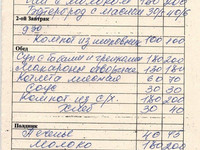 Чай с молоком 180 200
Бутерброд с маслом 30/40/6
2-ой Завтрак
9 30
Компот из шиповника 100 200
Обед
Суп с бобами и гренками 180 200
Макароны отварные 130 180
Котлета мясная 60 70
Соус 30 30
Компот из с/х. 180 200
Хлеб 30 40
Полдник
Печенье 40 45
Молоко 180 200